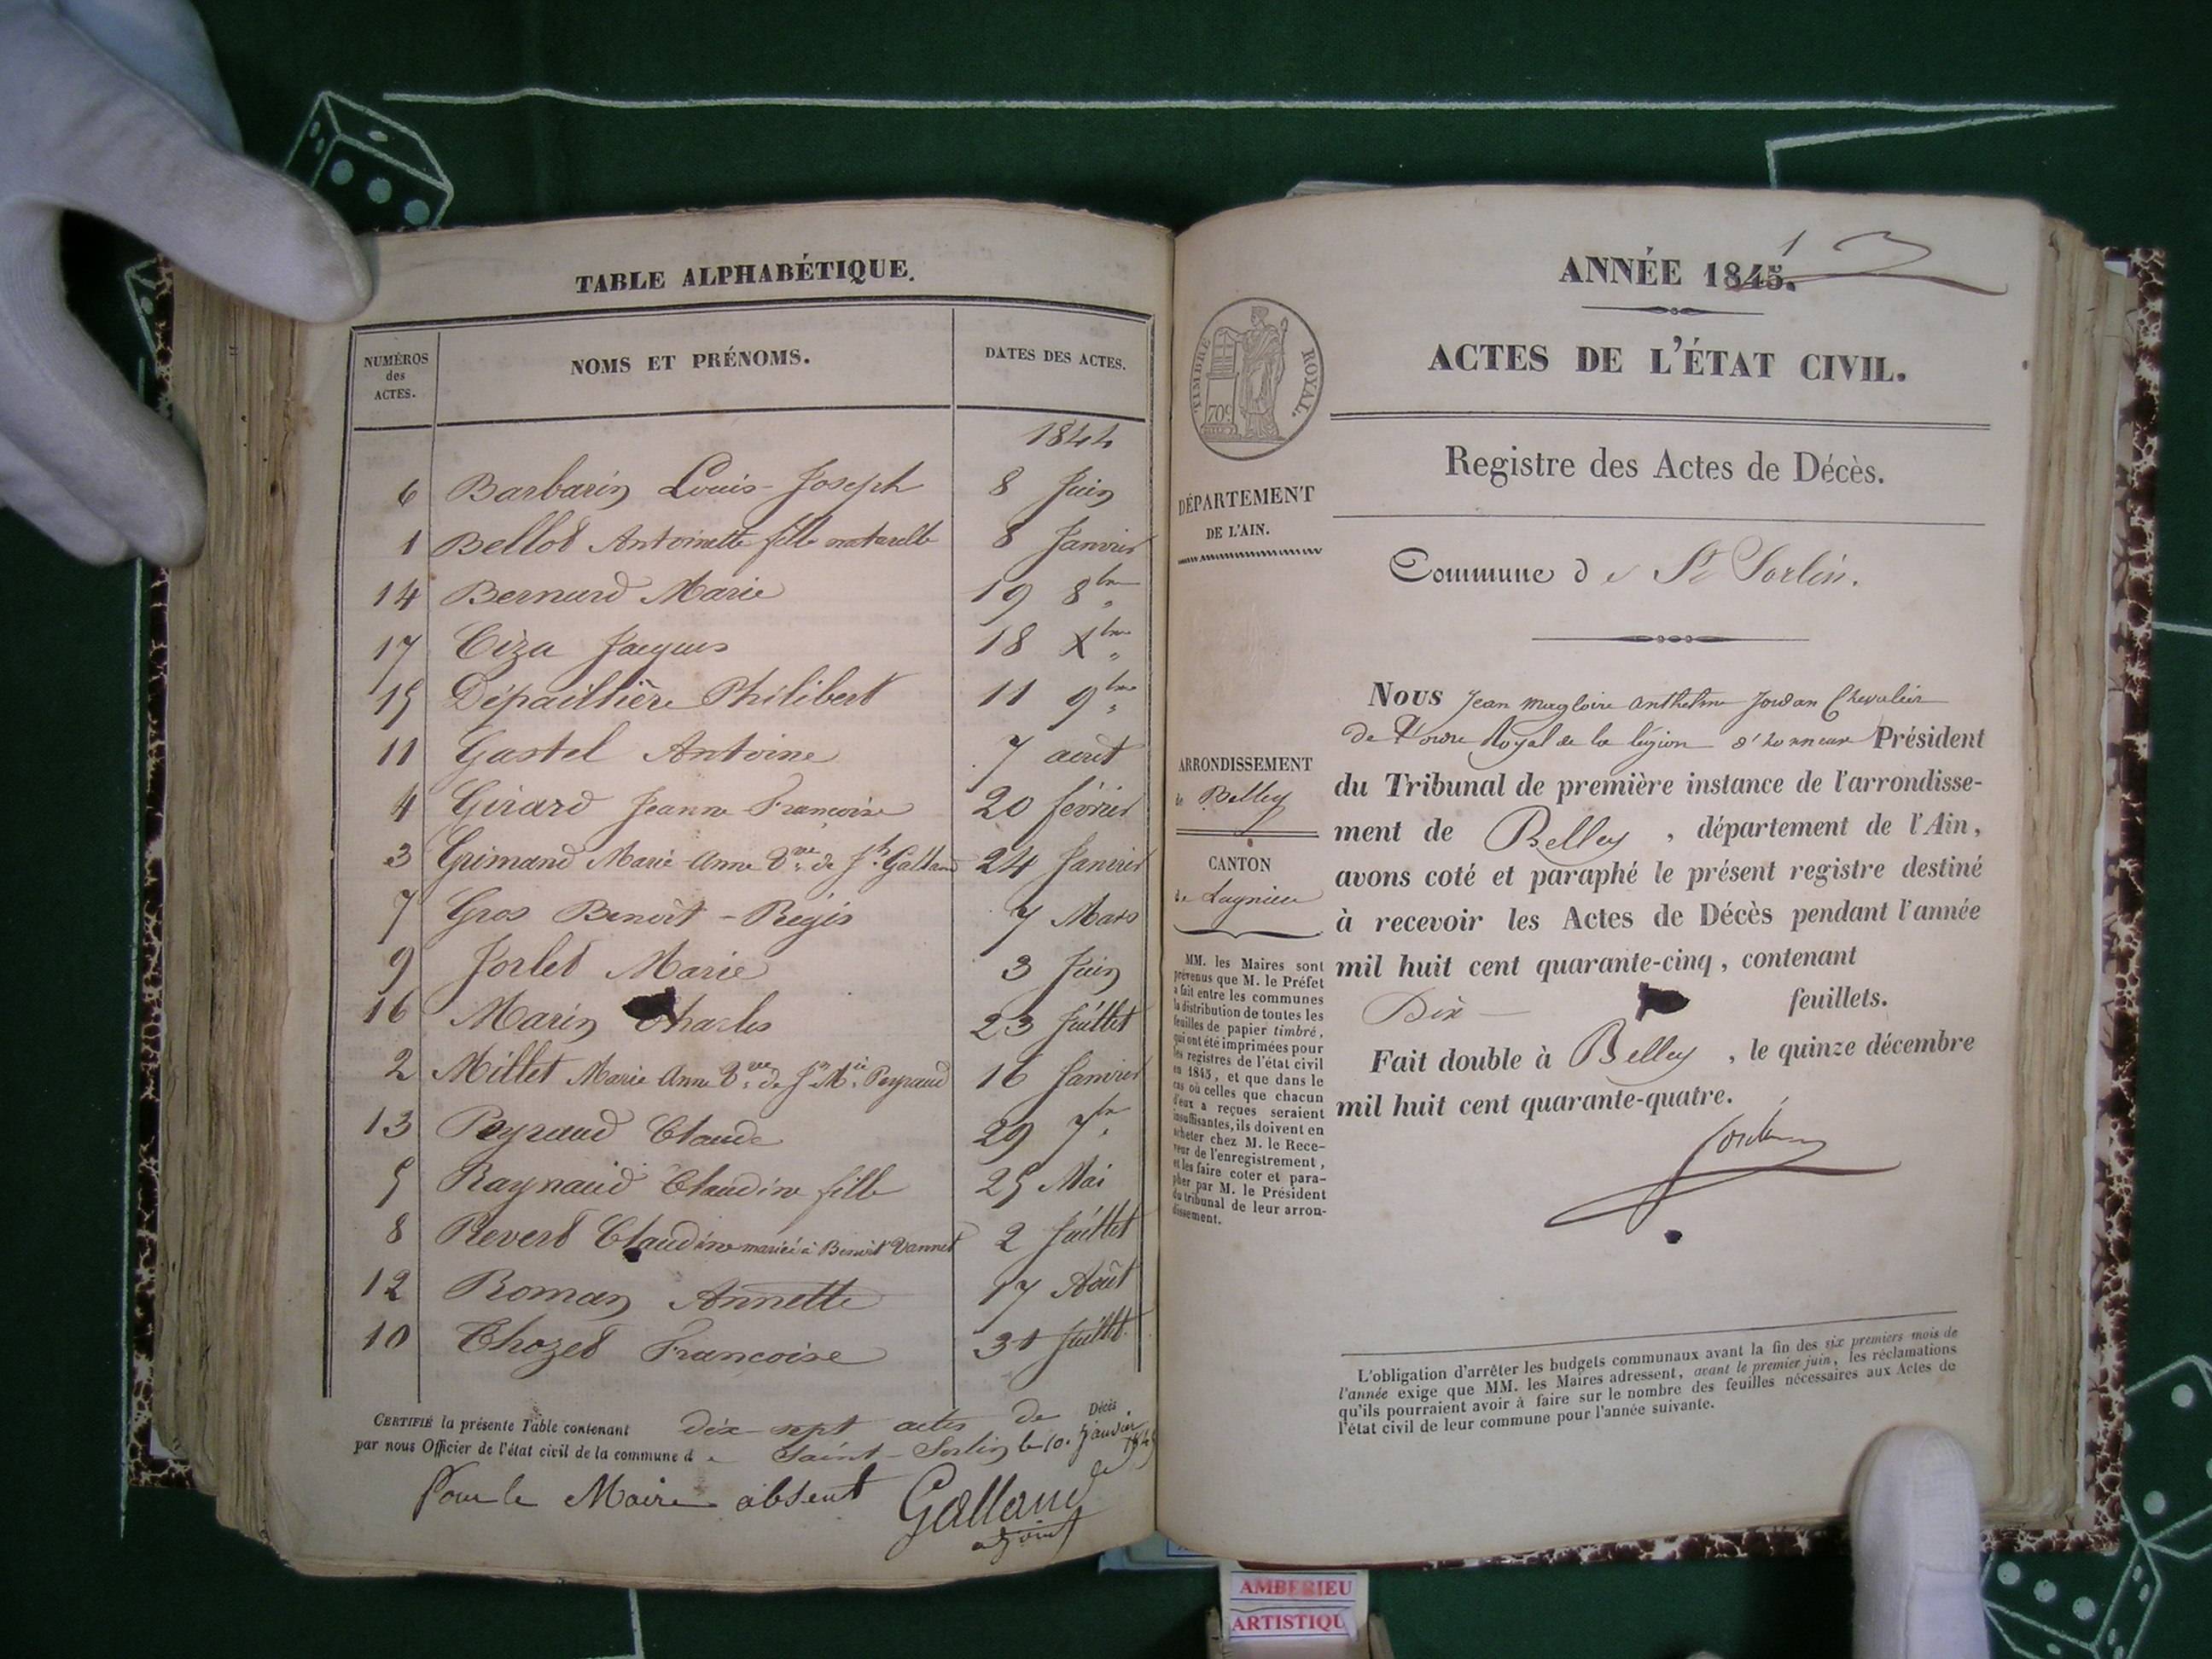 TABLE ALPHABÉTIQUE.
NUMÉROS
des
ACTES.
NOMS ET PRÉNOMS.
DATES DES ACTES.
1844
6 Barbarin Louis-Joseph 8 Juin
1 Bellot Antoinette fille naturelle 8 Janvier
14 Bernard Marie 19 8bre
17 Ciza Jacques 18 Xbre
15 Dépaillière Philibert 11 9bre
11 Gastel Antoine 7 août
4 Girard Jeanne Francoise 20 février
3 Grimand Marie-Anne Vve de Jh Galland 24 Janvier
7 Gros Benoît-Régis 7 Mars
9 Jorlet Marie 3 Juin
16 Marin Charles 23 Juillet
2 Millet Marie Anne Vve de Jn Mie Peyraud 16 Janvier
13 Peyraud Claude 29 7bre
5 Raynaud Claudine fille 25 Mai
8 Revert Claudine mariée à Benoit Vannet 2 Juillet
12 Roman Annette 17 Août
10 Thozet Francoise 31 Juillet
CERTIFIÉ la présente Table contenant dix-sept actes de Décès
par nous Officier de l'état civil de la commune de Saint-Sorlin le 10 Janvier 1845
Pour le Maire absent
Galland
adjoint
1
ANNÉE 1845.
ACTES DE L'ÉTAT CIVIL.
TIMBRE ROYAL.
70c
Registre des Actes de Décès.
DÉPARTEMENT
DE L'AIN.
Commune de St Sorlin.
Nous Jean Magloire Anthelme Jordan Chevalier
de l'ordre Royal de la légion d'honneur Président
du Tribunal de première instance de l'arrondisse-
ment de Belley, département de l'Ain,
avons coté et paraphé le présent registre destiné
à recevoir les Actes de Décès pendant l'année
mil huit cent quarante-cinq, contenant
Dix feuillets.
Fait double à Belley, le quinze décembre
mil huit cent quarante-quatre.
Jordan
ARRONDISSEMENT
de Belley
CANTON
de Lagnieu
MM. les Maires sont
prévenus que M. le Préfet
a fait entre les communes
la distribution de toutes les
feuilles de papier timbré,
qui ont été imprimées pour
les registres de l'état civil
en 1845, et que dans le
cas où celles que chacun
d'eux a reçues seraient
insuffisantes, ils doivent en
acheter chez M. le Rece-
veur de l'enregistrement,
et les faire coter et para-
pher par M. le Président
du tribunal de leur arron-
dissement.
L'obligation d'arrêter les budgets communaux avant la fin des six premiers mois de
l'année exige que MM. les Maires adressent, avant le premier juin, les réclamations
qu'ils pourraient avoir à faire sur le nombre des feuilles nécessaires aux Actes de
l'état civil de leur commune pour l'année suivante.
AMBERIEU
ARTISTIQU